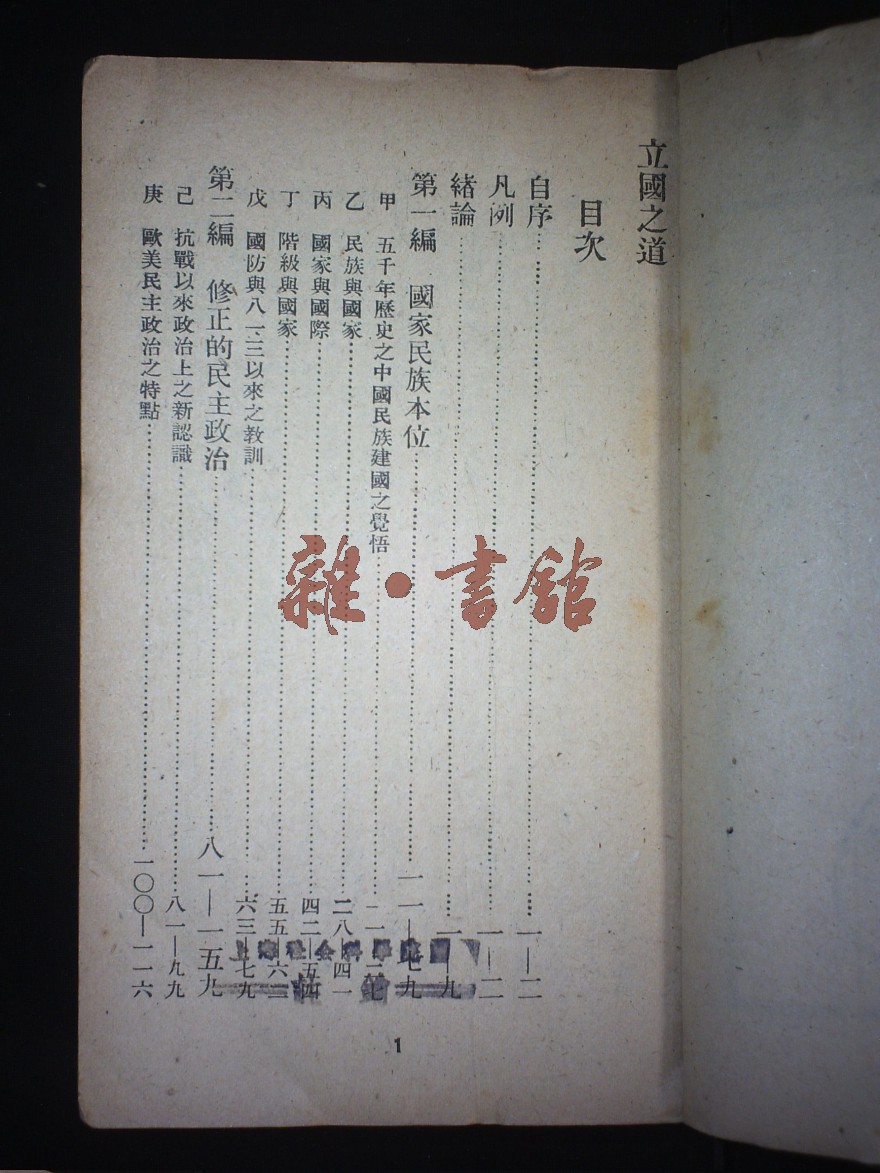 立國之道
目次
自序……………………一—二
凡例……………………一—二
緒論……………………一—九
第一編　國家民族本位……………………一一—七九
甲　五千年歷史之中國民族建國之覺悟……………………一一—二七
乙　民族與國家……………………二八—四一
丙　國家與國際……………………四二—五四
丁　階級與國家……………………五五—六二
戊　國防與八一三以來之教訓……………………六三—七九
第二編　修正的民主政治……………………八一—一五九
己　抗戰以來政治上之新認識……………………八一—九九
庚　歐美民主政治之特點……………………一〇〇—一一六
1
雜·書館